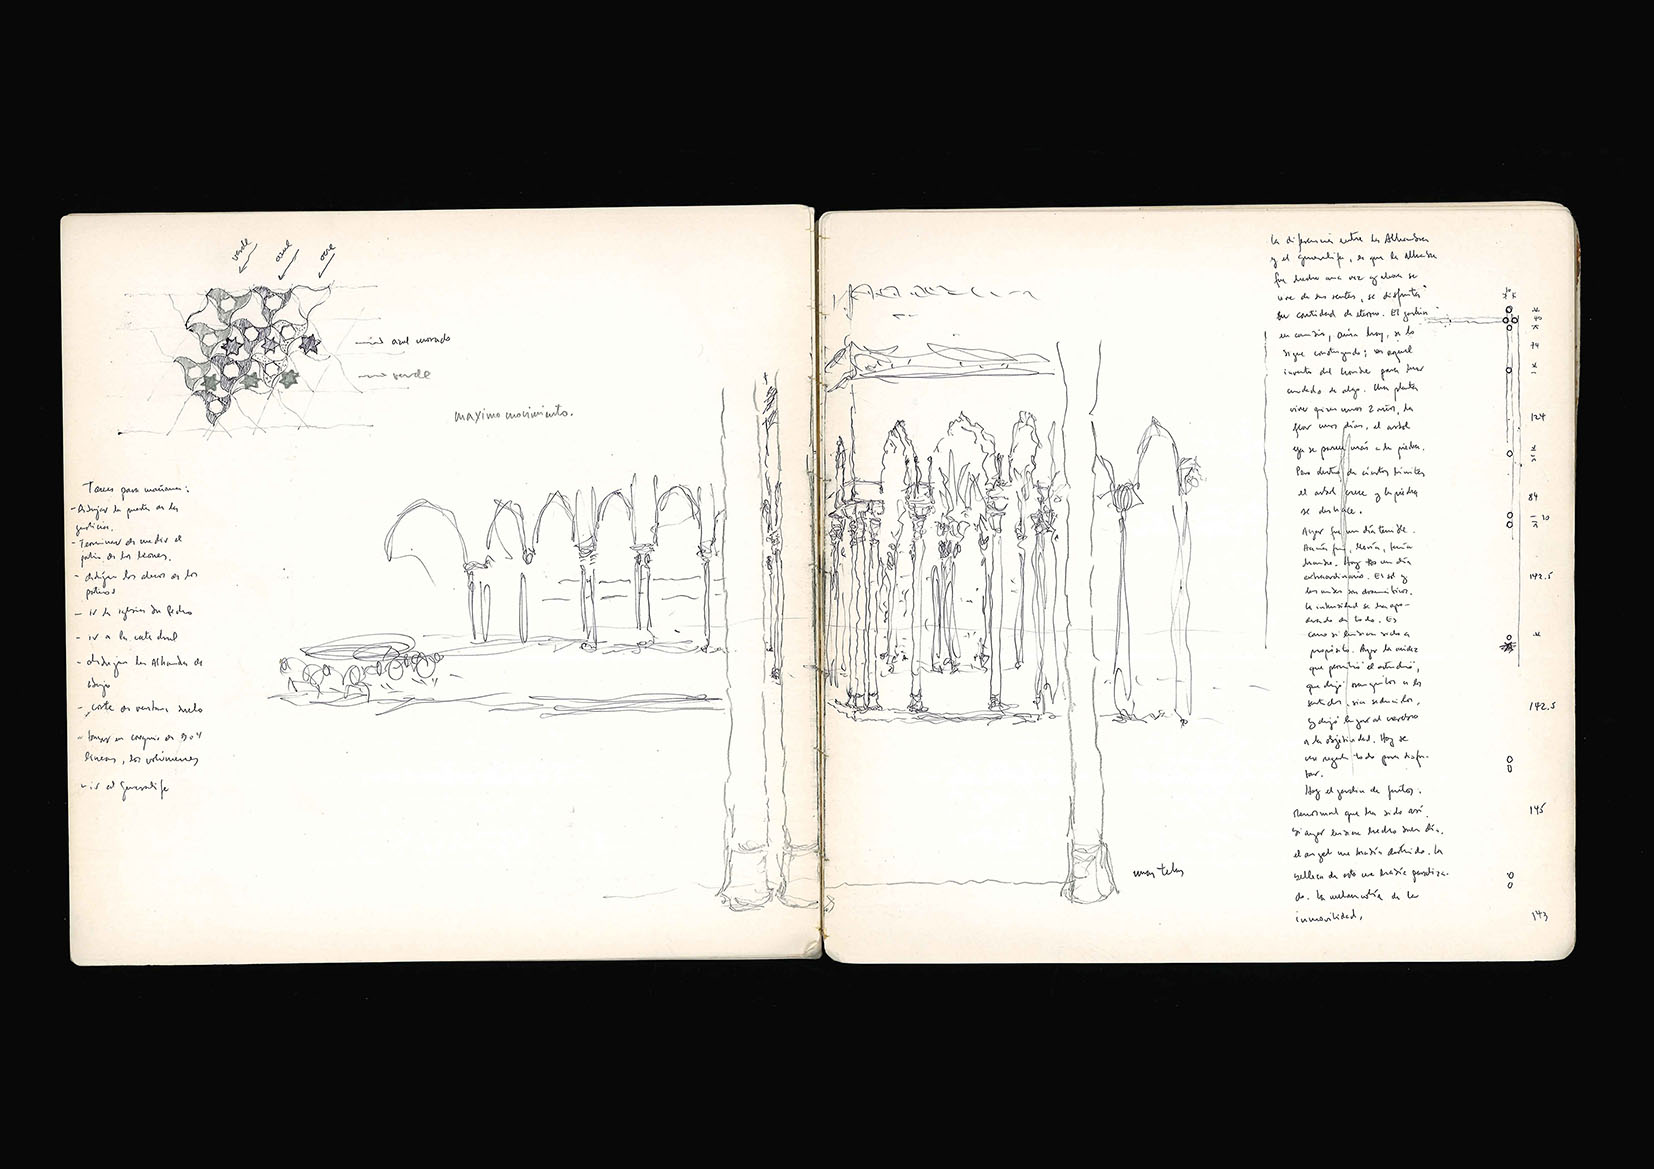 verde
azul
ocre
azul morado
verde
maximo movimiento.
Tareas para mañana:
- Dibujar la puerta de las
justicias.
- Terminar de medir el
patio de los leones.
- dibujar los de los
- ir la iglesia San Pedro
- ir a la catedral
- dibujar la Alhambra de
abajo
- corte de ventana suelo
- en de 3 o 4
líneas, los volúmenes
- ir al Generalife
La diferencia entre la Alhambra
y el generalife, es que la Alhambra
fue hecha una vez y ahora se
vive de sus , se disfruta
su cantidad de eterno. El jardín
en cambio, aún hoy, se lo
sigue construyendo; es aquel
invento del hombre para tener
cuidado de algo. Una planta
vive quizá unos 2 años, la
flor unos días, el árbol
ya se parece más a la piedra.
Pero dentro de ciertos límites
el árbol crece y la piedra
se deshace.
Ayer fue un día terrible.
Hacía frío, llovía, tenía
hambre. Hoy es un día
extraordinario. El sol y
las nubes son dramáticos.
la intensidad se ha apo-
derado de todo. Es
como si hubiera sido a
propósito. Ayer la
que permitió el estudio,
que dejó tranquilos a los
sentidos, sin seducirlos,
y dejó lugar al
a la objetividad. Hoy se
me regala todo para disfru-
tar.
Hoy el jardín da frutos.
menos mal que ha sido así.
Si ayer hubiera hecho buen día.
el ángel me habría destruido. La
belleza de esto me habría paraliza-
do. La melancolía de la
inmovilidad.
74
124
84
20
142.5
142.5
145
143